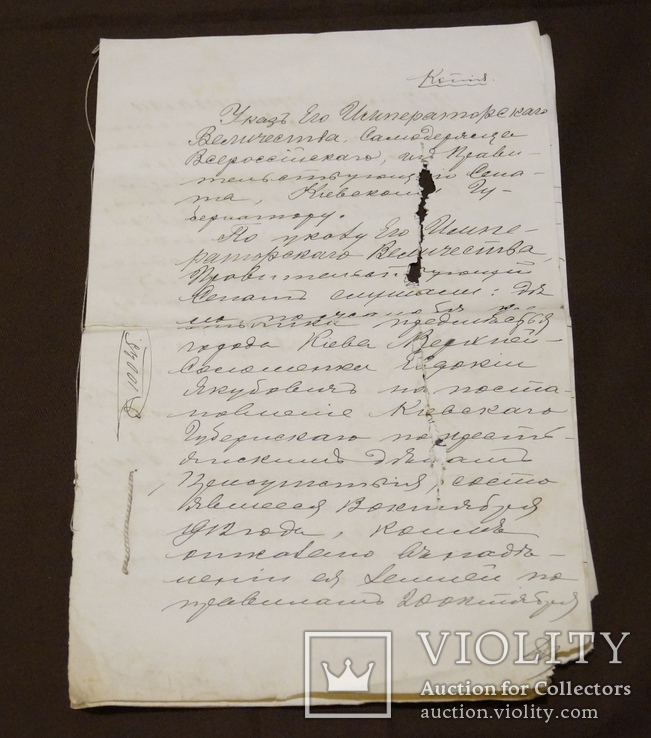 Копія
Указъ Его Императорскаго
Величества Самодержца
Всероссійскаго, изъ Прави-
тельствующаго Сена-
та, Кіевскому Гу-
бернатору.
По указу Его Импе-
раторскаго Величества,
Правительствующій
Сенатъ слушали: дѣ-
ло по жалобѣ
предмѣстья
города Кіева Верхней-
Соломенки Евдокіи
Якубовичъ на поста-
новленіе Кіевскаго
Губернскаго по кресть-
янскимъ дѣламъ
Присутствія, состо
явшееся 8 октября
1912 года, коимъ
отказано въ надѣ-
леніи ея землей по
правиламъ 20 октября
VIOLITY
Auction for Collectors
auction.violity.com